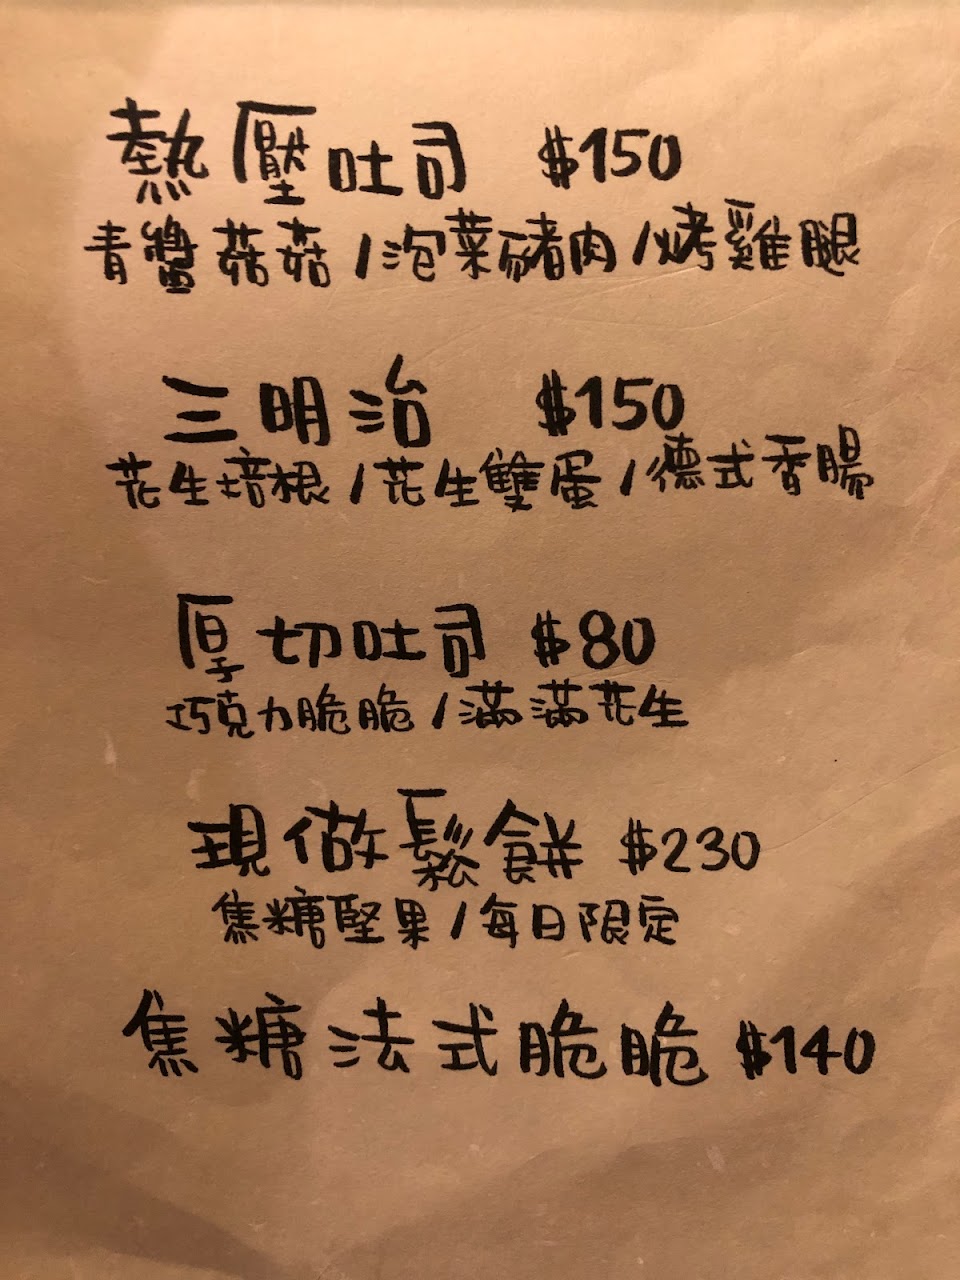 熱壓吐司 $150
青醬菇菇/泡菜豬肉/烤雞腿
三明治 $150
花生培根/花生雙蛋/德式香腸
厚切吐司 $80
巧克力脆脆/滿滿花生
現做鬆餅 $230
焦糖堅果/每日限定
焦糖法式脆脆 $140